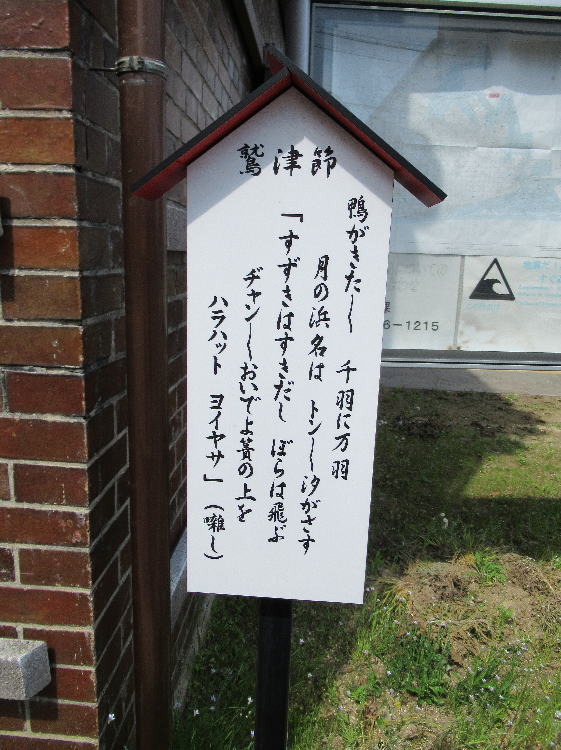 鷲津節
鴨がきた〳〵　千羽に万羽
月の浜名は　トン〳〵汐がさす
「すずきはすきだし　ぼらは飛ぶ
ヂャン〳〵おいでよ簀の上を
ハラハット　ヨイヤサ」（囃し）
6-1215